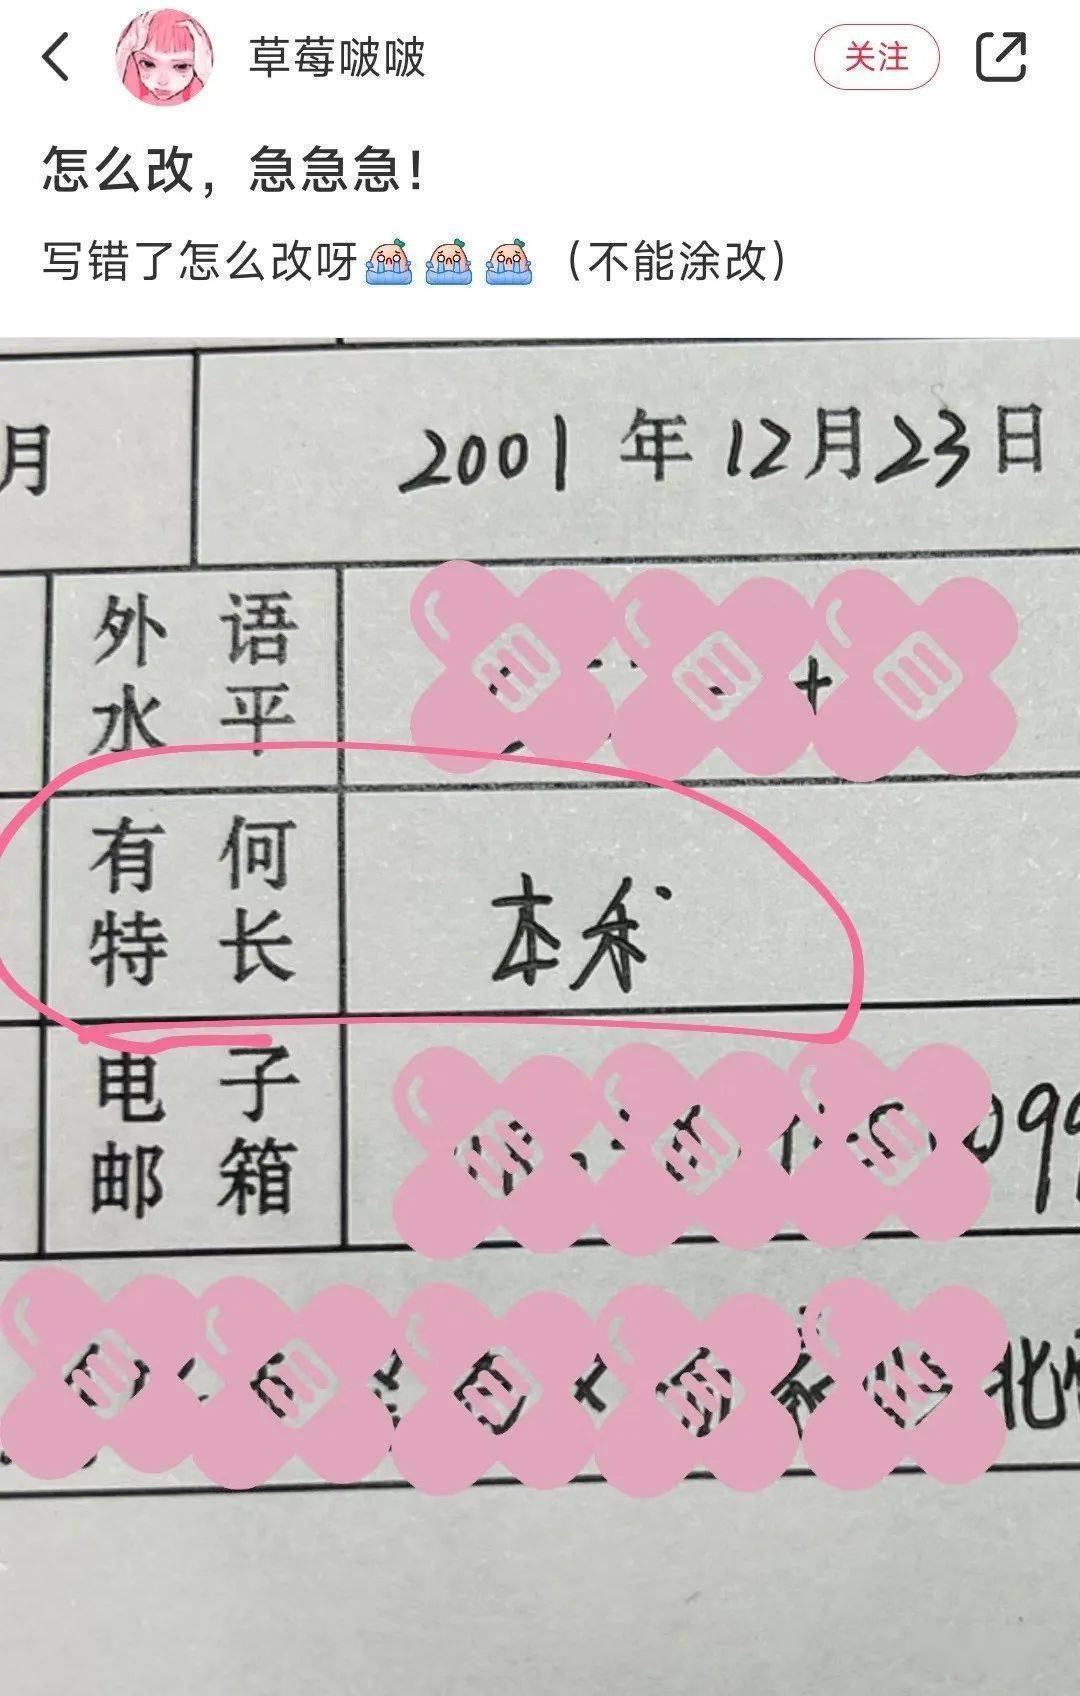 草莓啵啵 关注
怎么改，急急急！
写错了怎么改呀（不能涂改）
月 2001年12月23日
外语
水平 +
有何
特长 本术
电子
邮箱 099
北